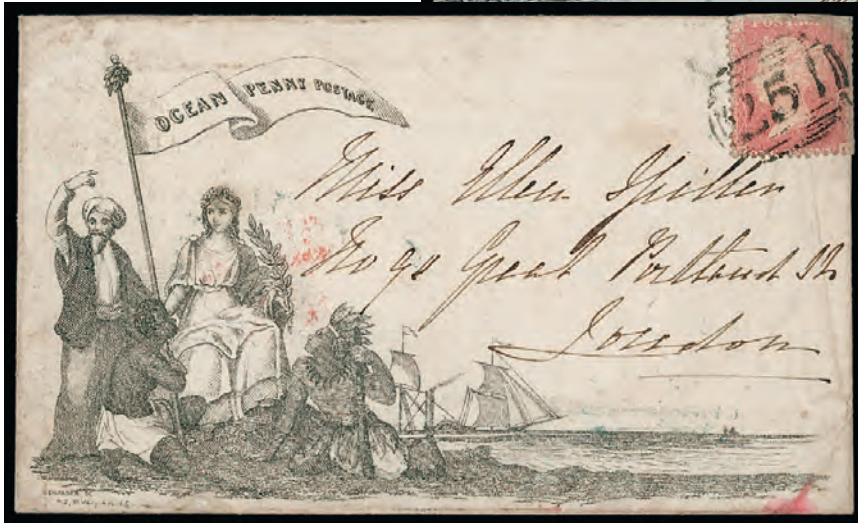 OCEAN PENNY POSTAGE
POSTAGE
251
Miss Ellen Spiller
No 90 Great Portland St
London